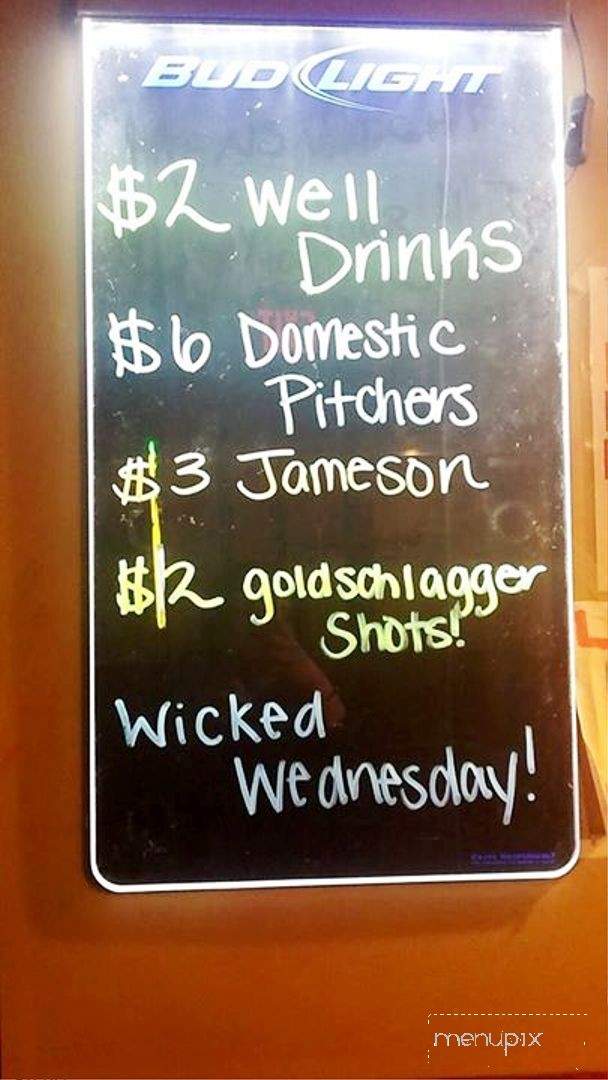 BUD LIGHT
$2 Well
Drinks
$6 Domestic
Pitchers
$3 Jameson
$2 goldschlagger
Shots!
Wicked
Wednesday!
menupix